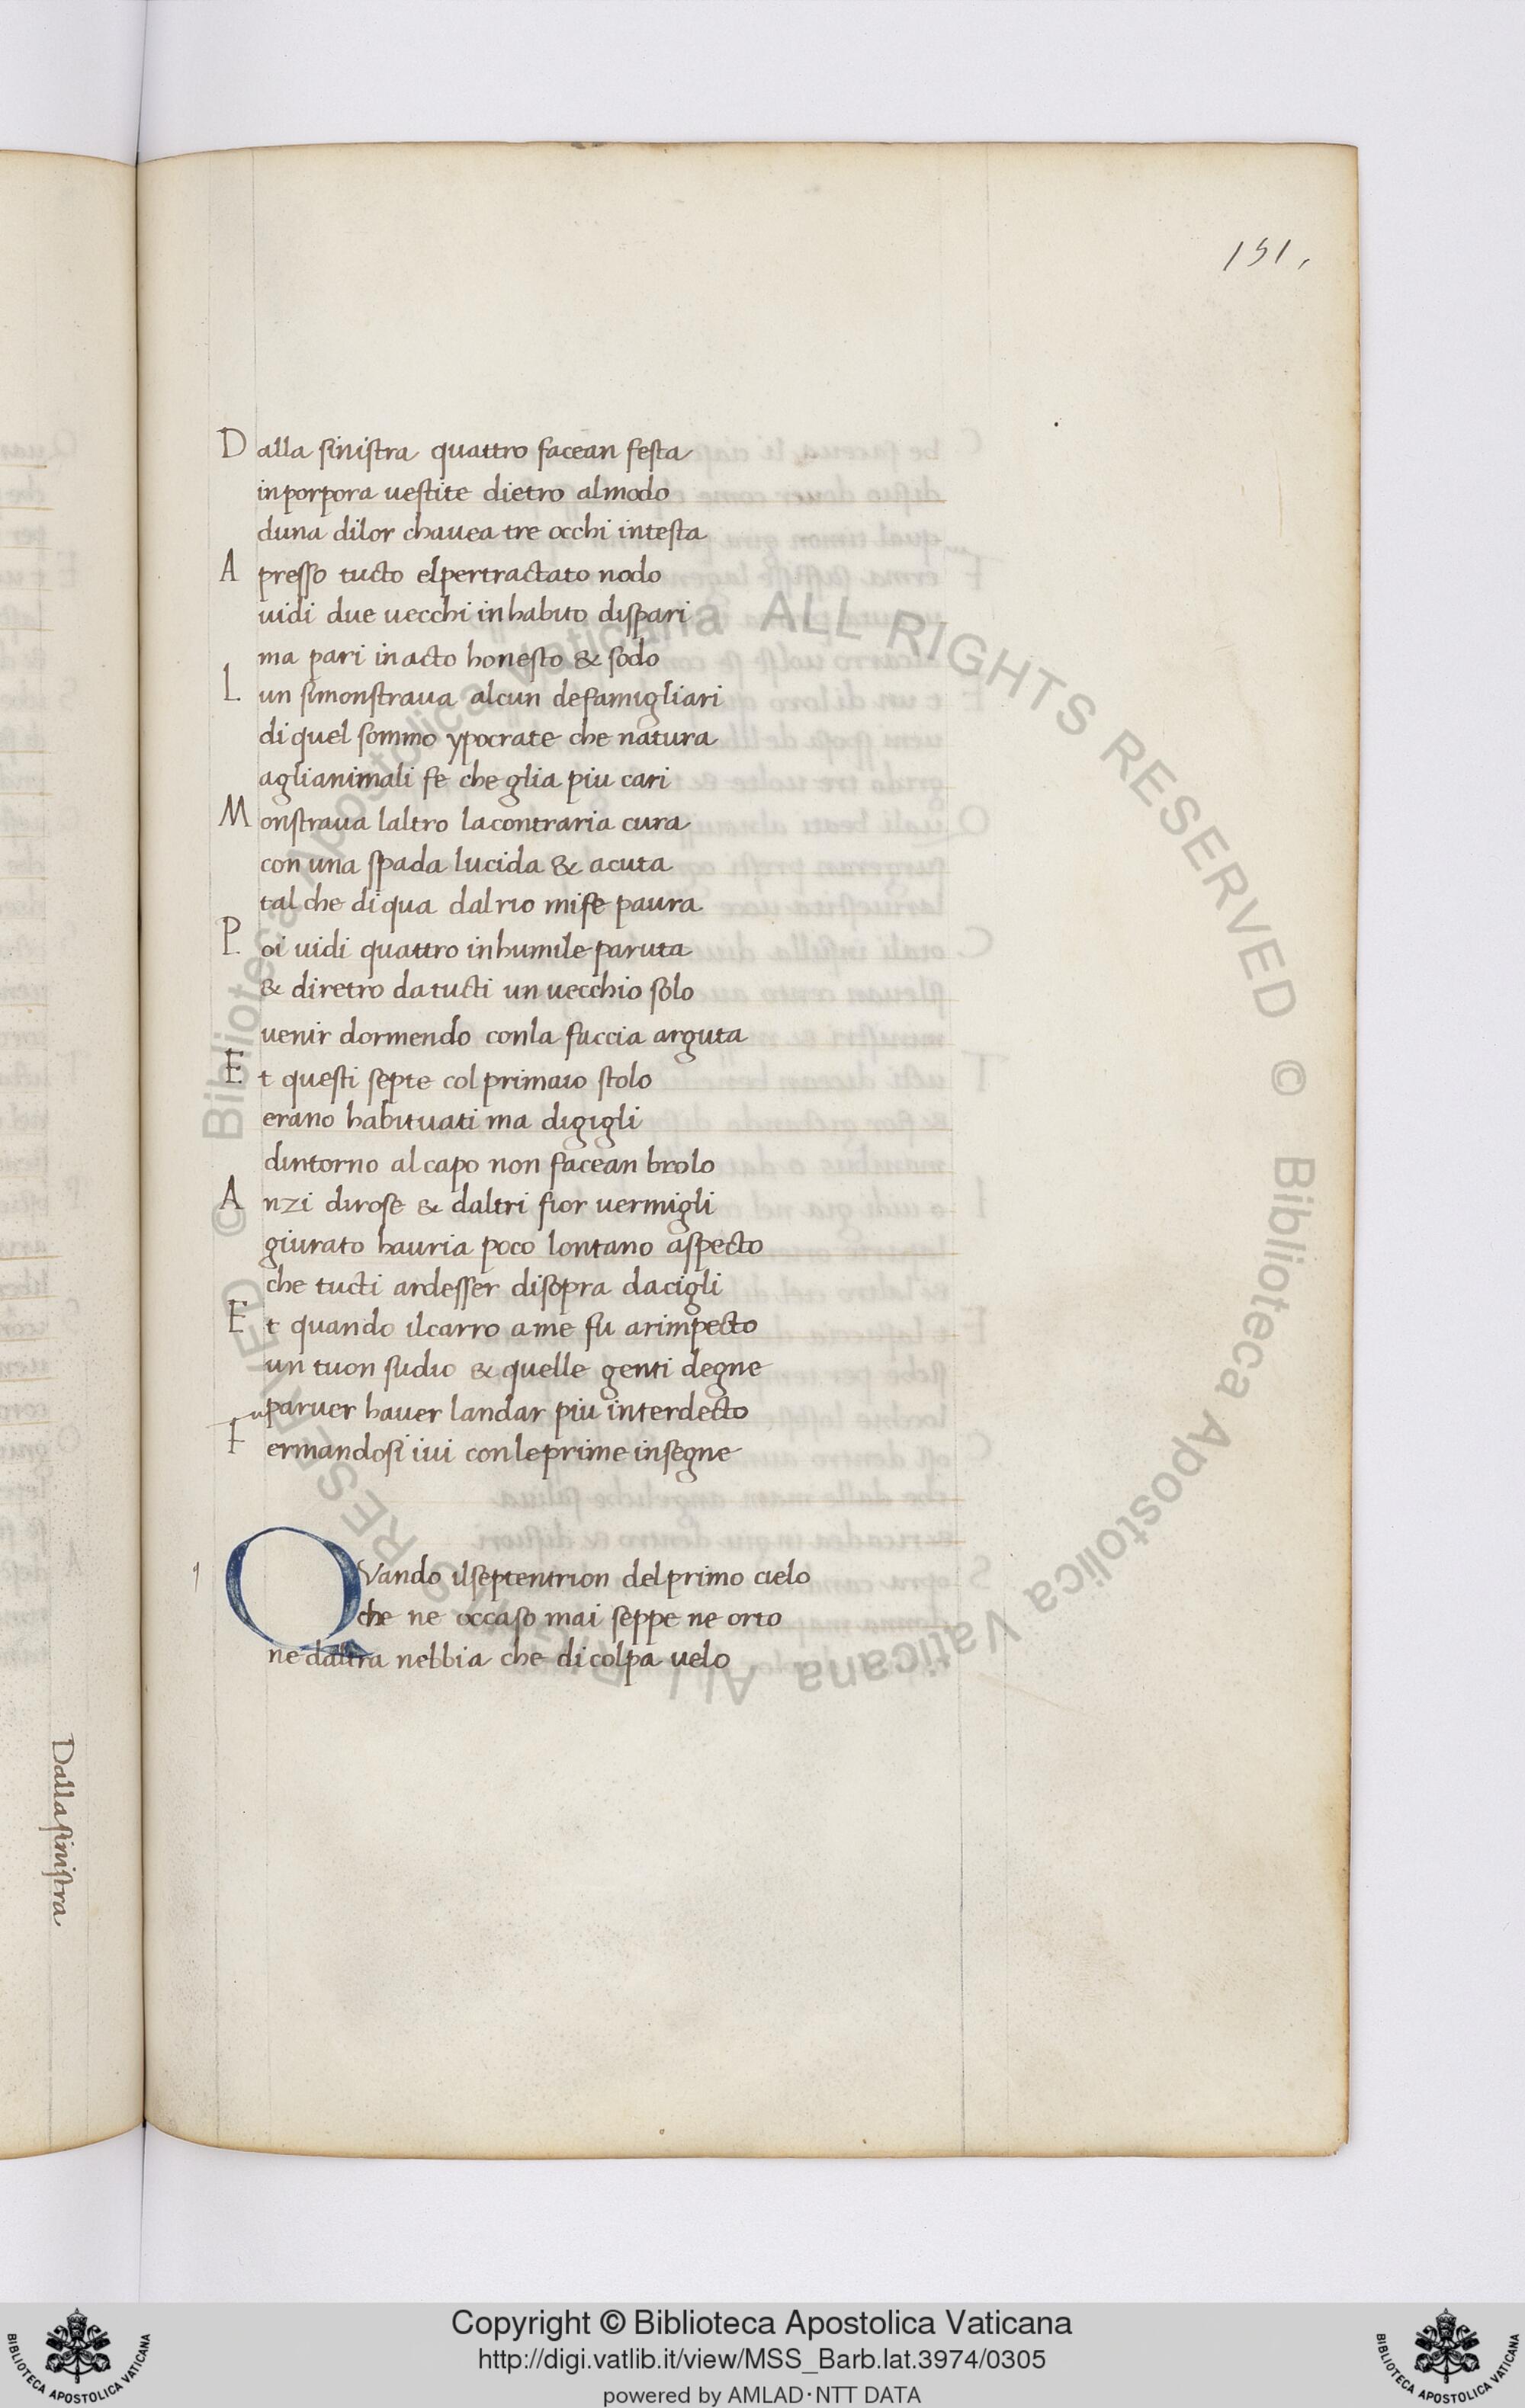 151.
D alla sinistra quattro facean festa
inporpora uestite dietro almodo
duna dilor chauea tre occhi intesta
A presso tucto elpertractato nodo
uidi due uecchi inhabito dispari
ma pari inacto honesto & sodo
L un simonstraua alcun defamigliari
di quel sommo ypocrate che natura
aglianimali fe che glia piu cari
M onstraua laltro lacontraria cura
con una spada lucida & acuta
tal che diqua dalrio mife paura
P oi uidi quattro inhumile paruta
& diretro datucti un uecchio solo
uenir dormendo conla faccia arguta
E t questi septe col primaio stolo
erano habituati ma digigli
dintorno al capo non facean brolo
A nzi dirose & daltri fior uermigli
giurato hauria poco lontano aspecto
che tucti ardesser disopra dacigli
E t quando ilcarro ame fu arimpecto
un tuon sudio & quelle genti degne
paruer hauer landar piu interdecto
F ermandosi iui conleprime insegne
QVando ilseptentrion delprimo cielo
che ne occaso mai seppe ne orto
ne daltra nebbia che di colpa uelo
Dalla sinistra
© Biblioteca Apostolica Vaticana ALL RIGHTS RESERVED © Biblioteca Apostolica Vaticana ALL RIGHTS RESERVED
Copyright © Biblioteca Apostolica Vaticana
http://digi.vatlib.it/view/MSS_Barb.lat.3974/0305
powered by AMLAD·NTT DATA
BIBLIOTECA APOSTOLICA VATICANA
BIBLIOTECA APOSTOLICA VATICANA